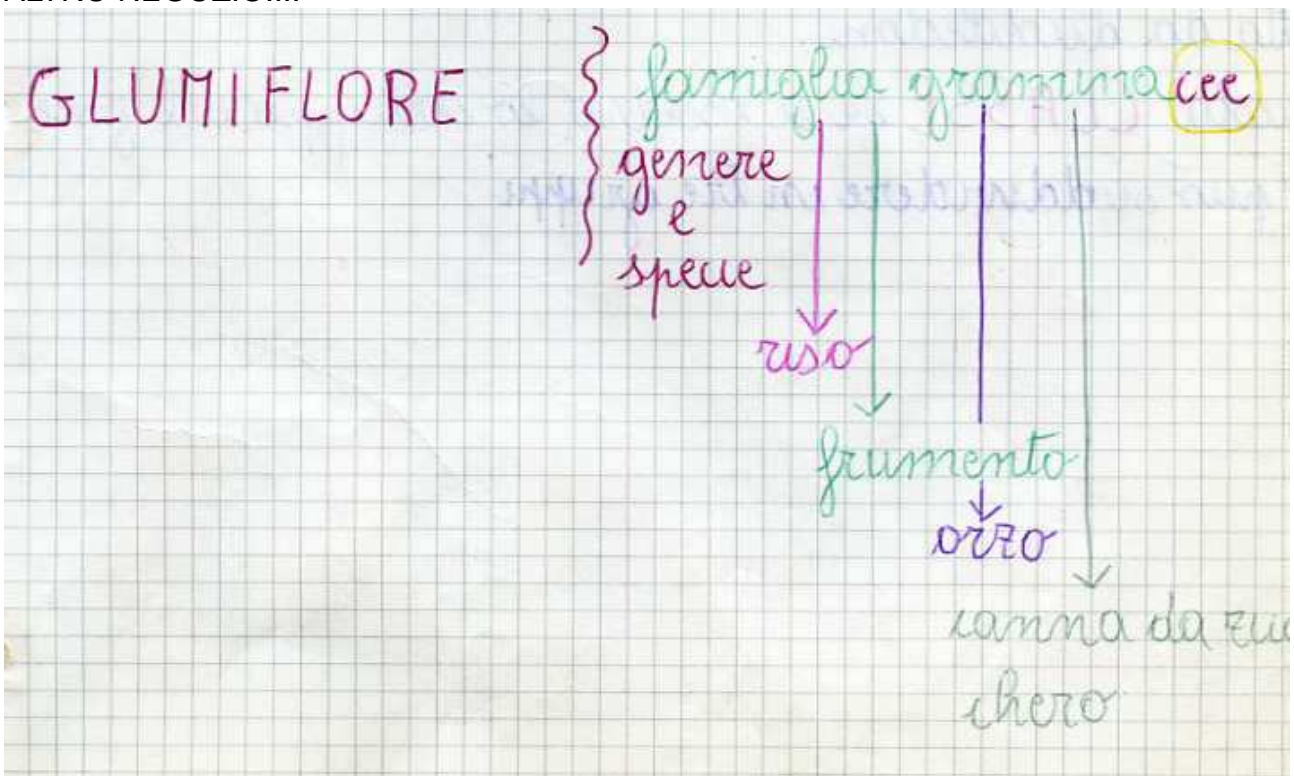 GLUMIFLORE
famiglia graminacee
genere
e
specie
riso
frumento
orzo
canna da zuc
chero